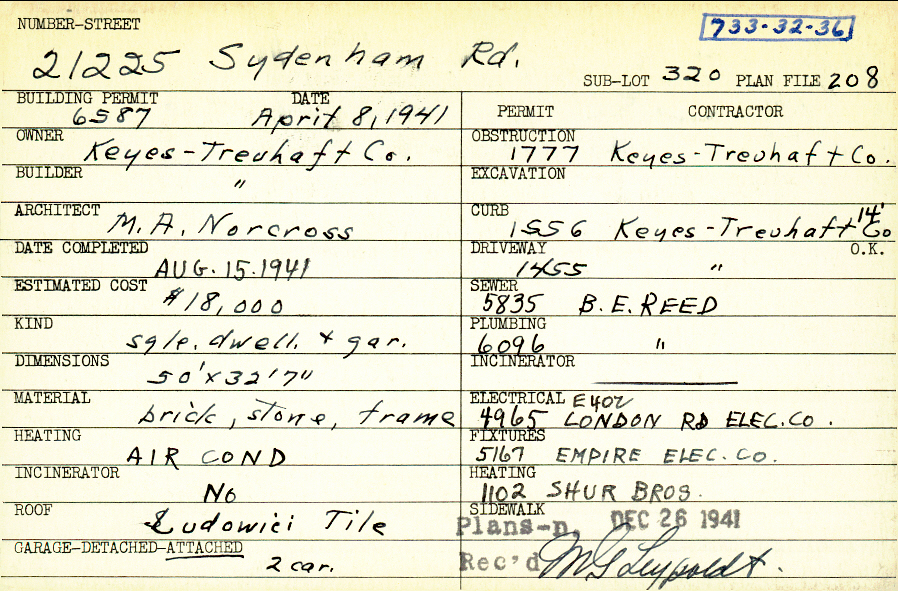 NUMBER-STREET
733-32-36
21225 Sydenham Rd.
SUB-LOT 320 PLAN FILE 208
BUILDING PERMIT DATE
6587 April 8, 1941
OWNER
Keyes-Treuhaft Co.
BUILDER
"
ARCHITECT
M.A. Norcross
DATE COMPLETED
AUG. 15. 1941
ESTIMATED COST
$18,000
KIND
sgle. dwell. + gar.
DIMENSIONS
50'x32'7"
MATERIAL
brick, stone, frame
HEATING
AIR COND
INCINERATOR
No
ROOF
Ludowici Tile
GARAGE-DETACHED-ATTACHED
2 car.
PERMIT CONTRACTOR
OBSTRUCTION
1777 Keyes-Treuhaft Co.
EXCAVATION
CURB 14'
1556 Keyes-Treuhaft Co
DRIVEWAY O.K.
1455 "
SEWER
5835 B.E. REED
PLUMBING
6096 "
INCINERATOR
ELECTRICAL E402
4965 LONDON RD ELEC. CO.
FIXTURES
5167 EMPIRE ELEC. CO.
HEATING
1102 SHUR BROS.
SIDEWALK
Plans-n. DEC 26 1941
Rec'd M G Leypoldt.